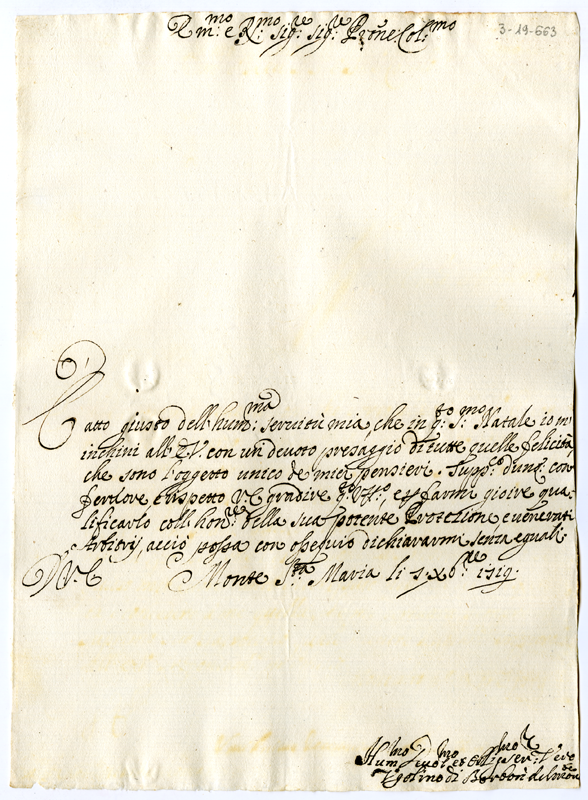 Em:mo e R:mo Sig:re Sig:re Prōne Col:mo
3-19-663
È atto giusto dell' hum:ma servitù mia, che in q:to S:mo Natale io m'
inchini all' E.V. con un devoto presaggio di tutte quelle felicità,
che sono l'oggetto unico de miei pensieri. Supp:co dunq: con
fervore e rispetto V.E. gradire q:to et farmi gioire qua=
lificarlo coll' hon:re della sua potente Protezione e venerati
Arbitrij, acciò possa con ossequio dichiararmi senza egual:
D. V. E. Monte S:ta Maria li X:bre 1719.
Hum:mo D:mo et ser: vero
Ugolino di Borbon del Monte